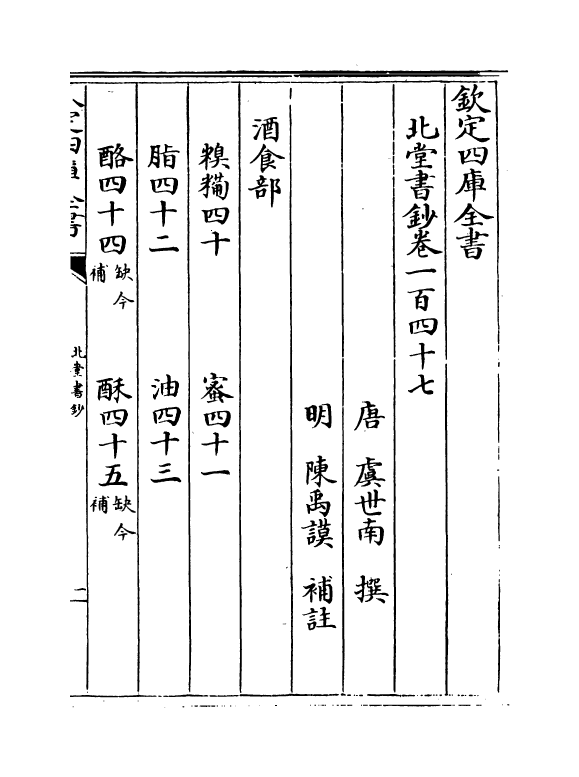 欽定四庫全書
北堂書鈔卷一百四十七
唐 虞世南 撰
明 陳禹謨 補註
酒食部
糗糒四十 蜜四十一
脂四十二 油四十三
酪四十四缺今補 酥四十五缺今補
欽定四庫全書 北堂書鈔 二